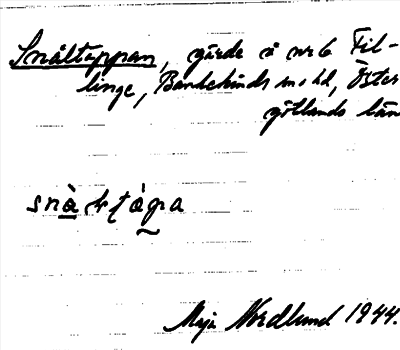 Snåltäppan, gärde å nr 6 Fil-
linge, Bankekinds sn o hd, Öster
götlands län
Maja Nordlund 1944.